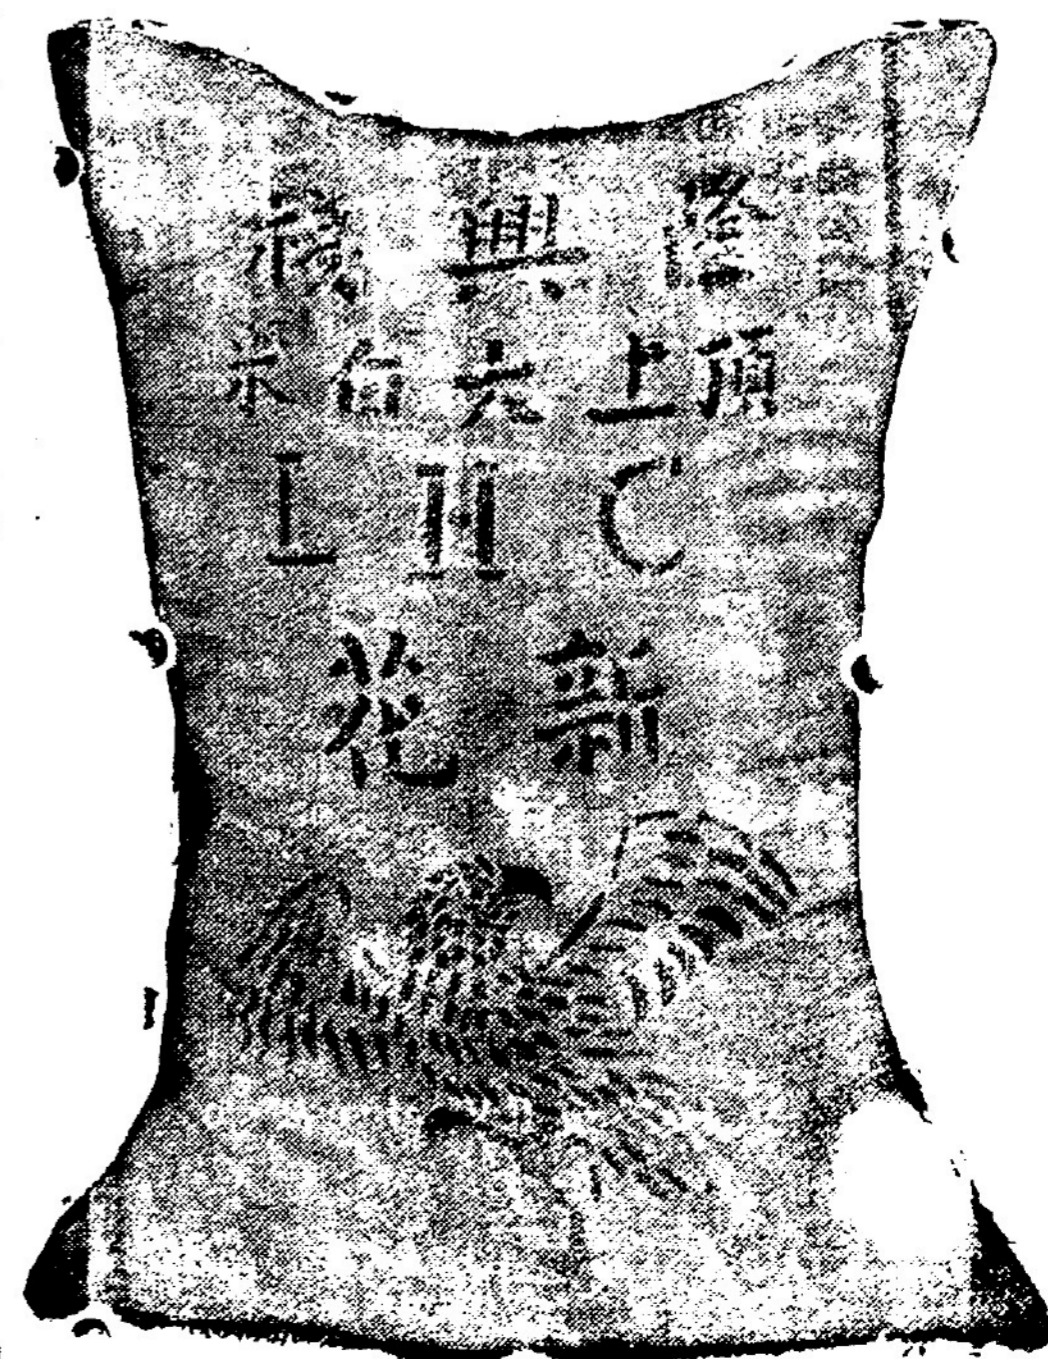 隆興棧
頂上米
L H C
新花